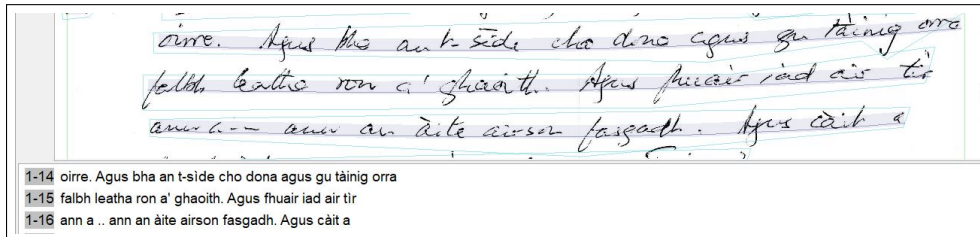 oirre. Agus bha an t-side cho dona agus gu tàinig orra
falbh leatha ron a' ghaoith. Agus fhuair iad air tìr
ann a -- ann an àite airson fasgadh. Agus càit a
1-14 oirre. Agus bha an t-sìde cho dona agus gu tàinig orra
1-15 falbh leatha ron a' ghaoith. Agus fhuair iad air tìr
1-16 ann a .. ann an àite airson fasgadh. Agus càit a